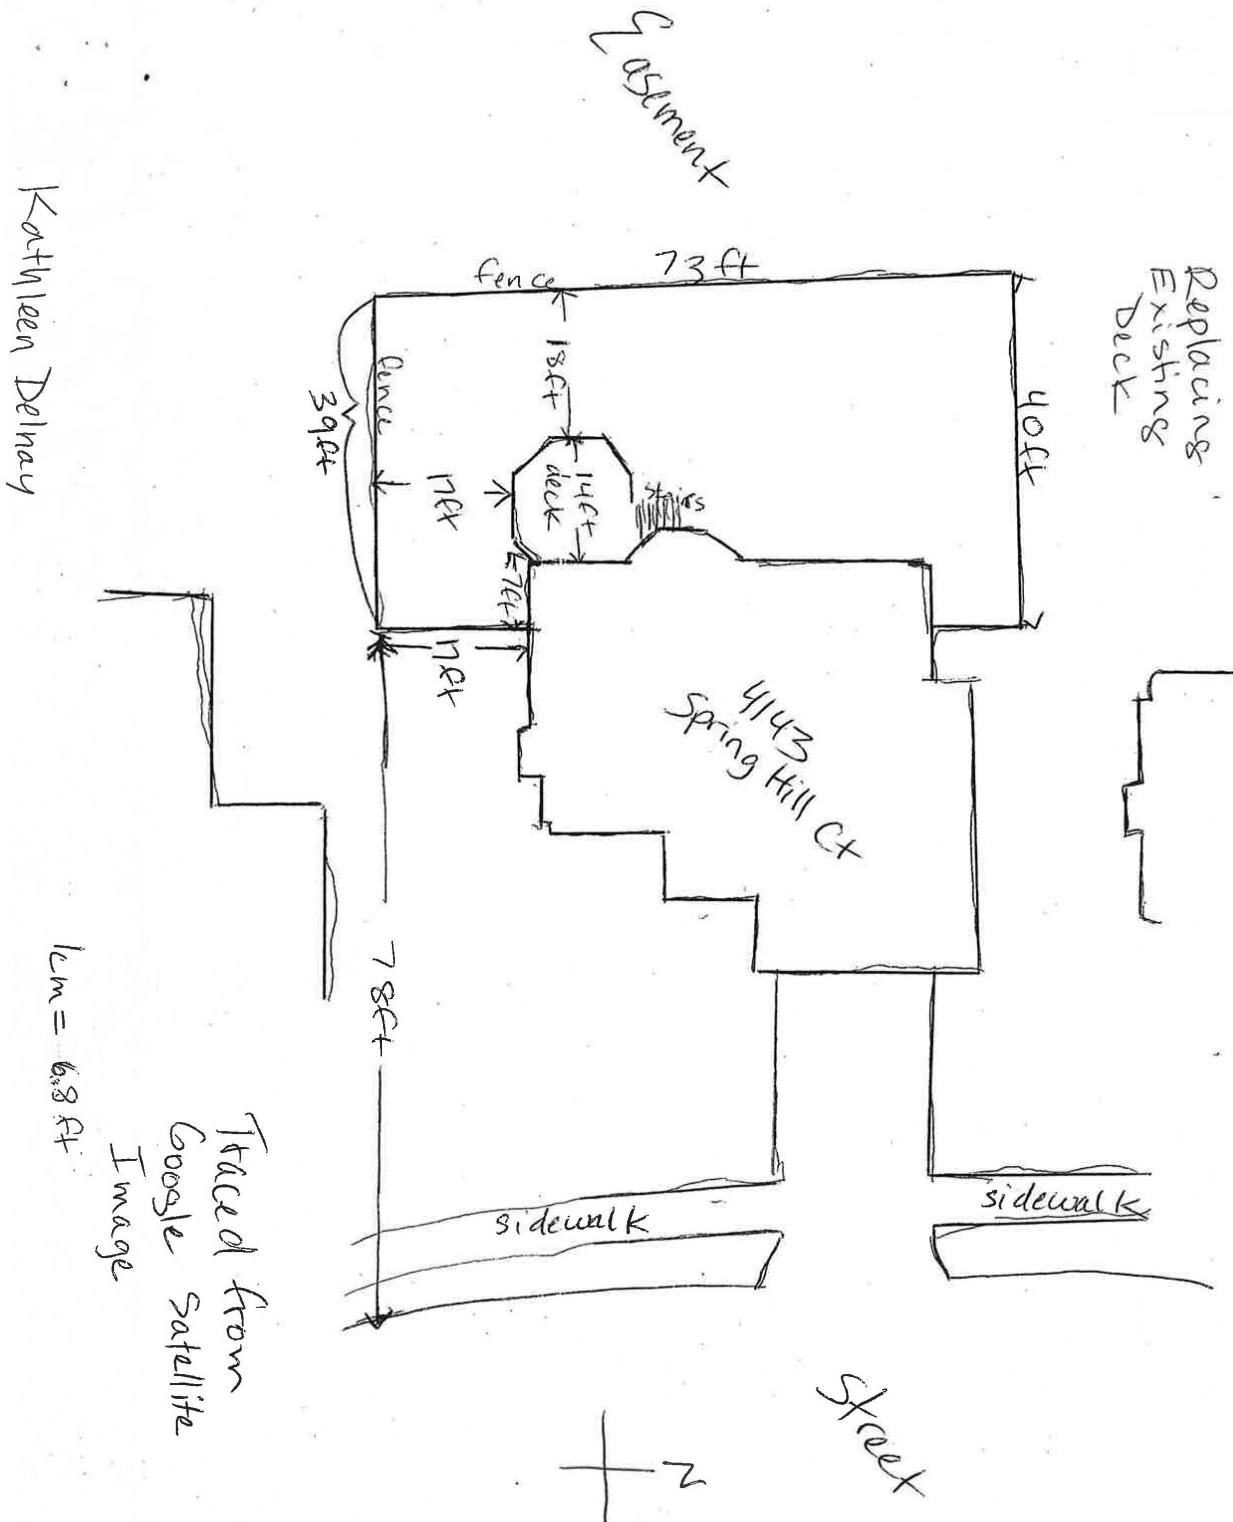 Easement
Kathleen Delnay
Replacing
Existing
Deck
fence
73 ft
18ft
fence
39ft
40ft
17ft
14ft
deck
stairs
7ft
17ft
4143
Spring Hill Ct
78ft
1cm = 6.8 ft
Traced from
Google Satellite
Image
sidewalk
sidewalk
Street
N